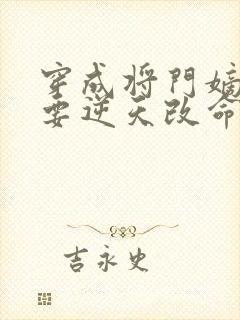 穿成将門嫡
要逆天改命
吉永史